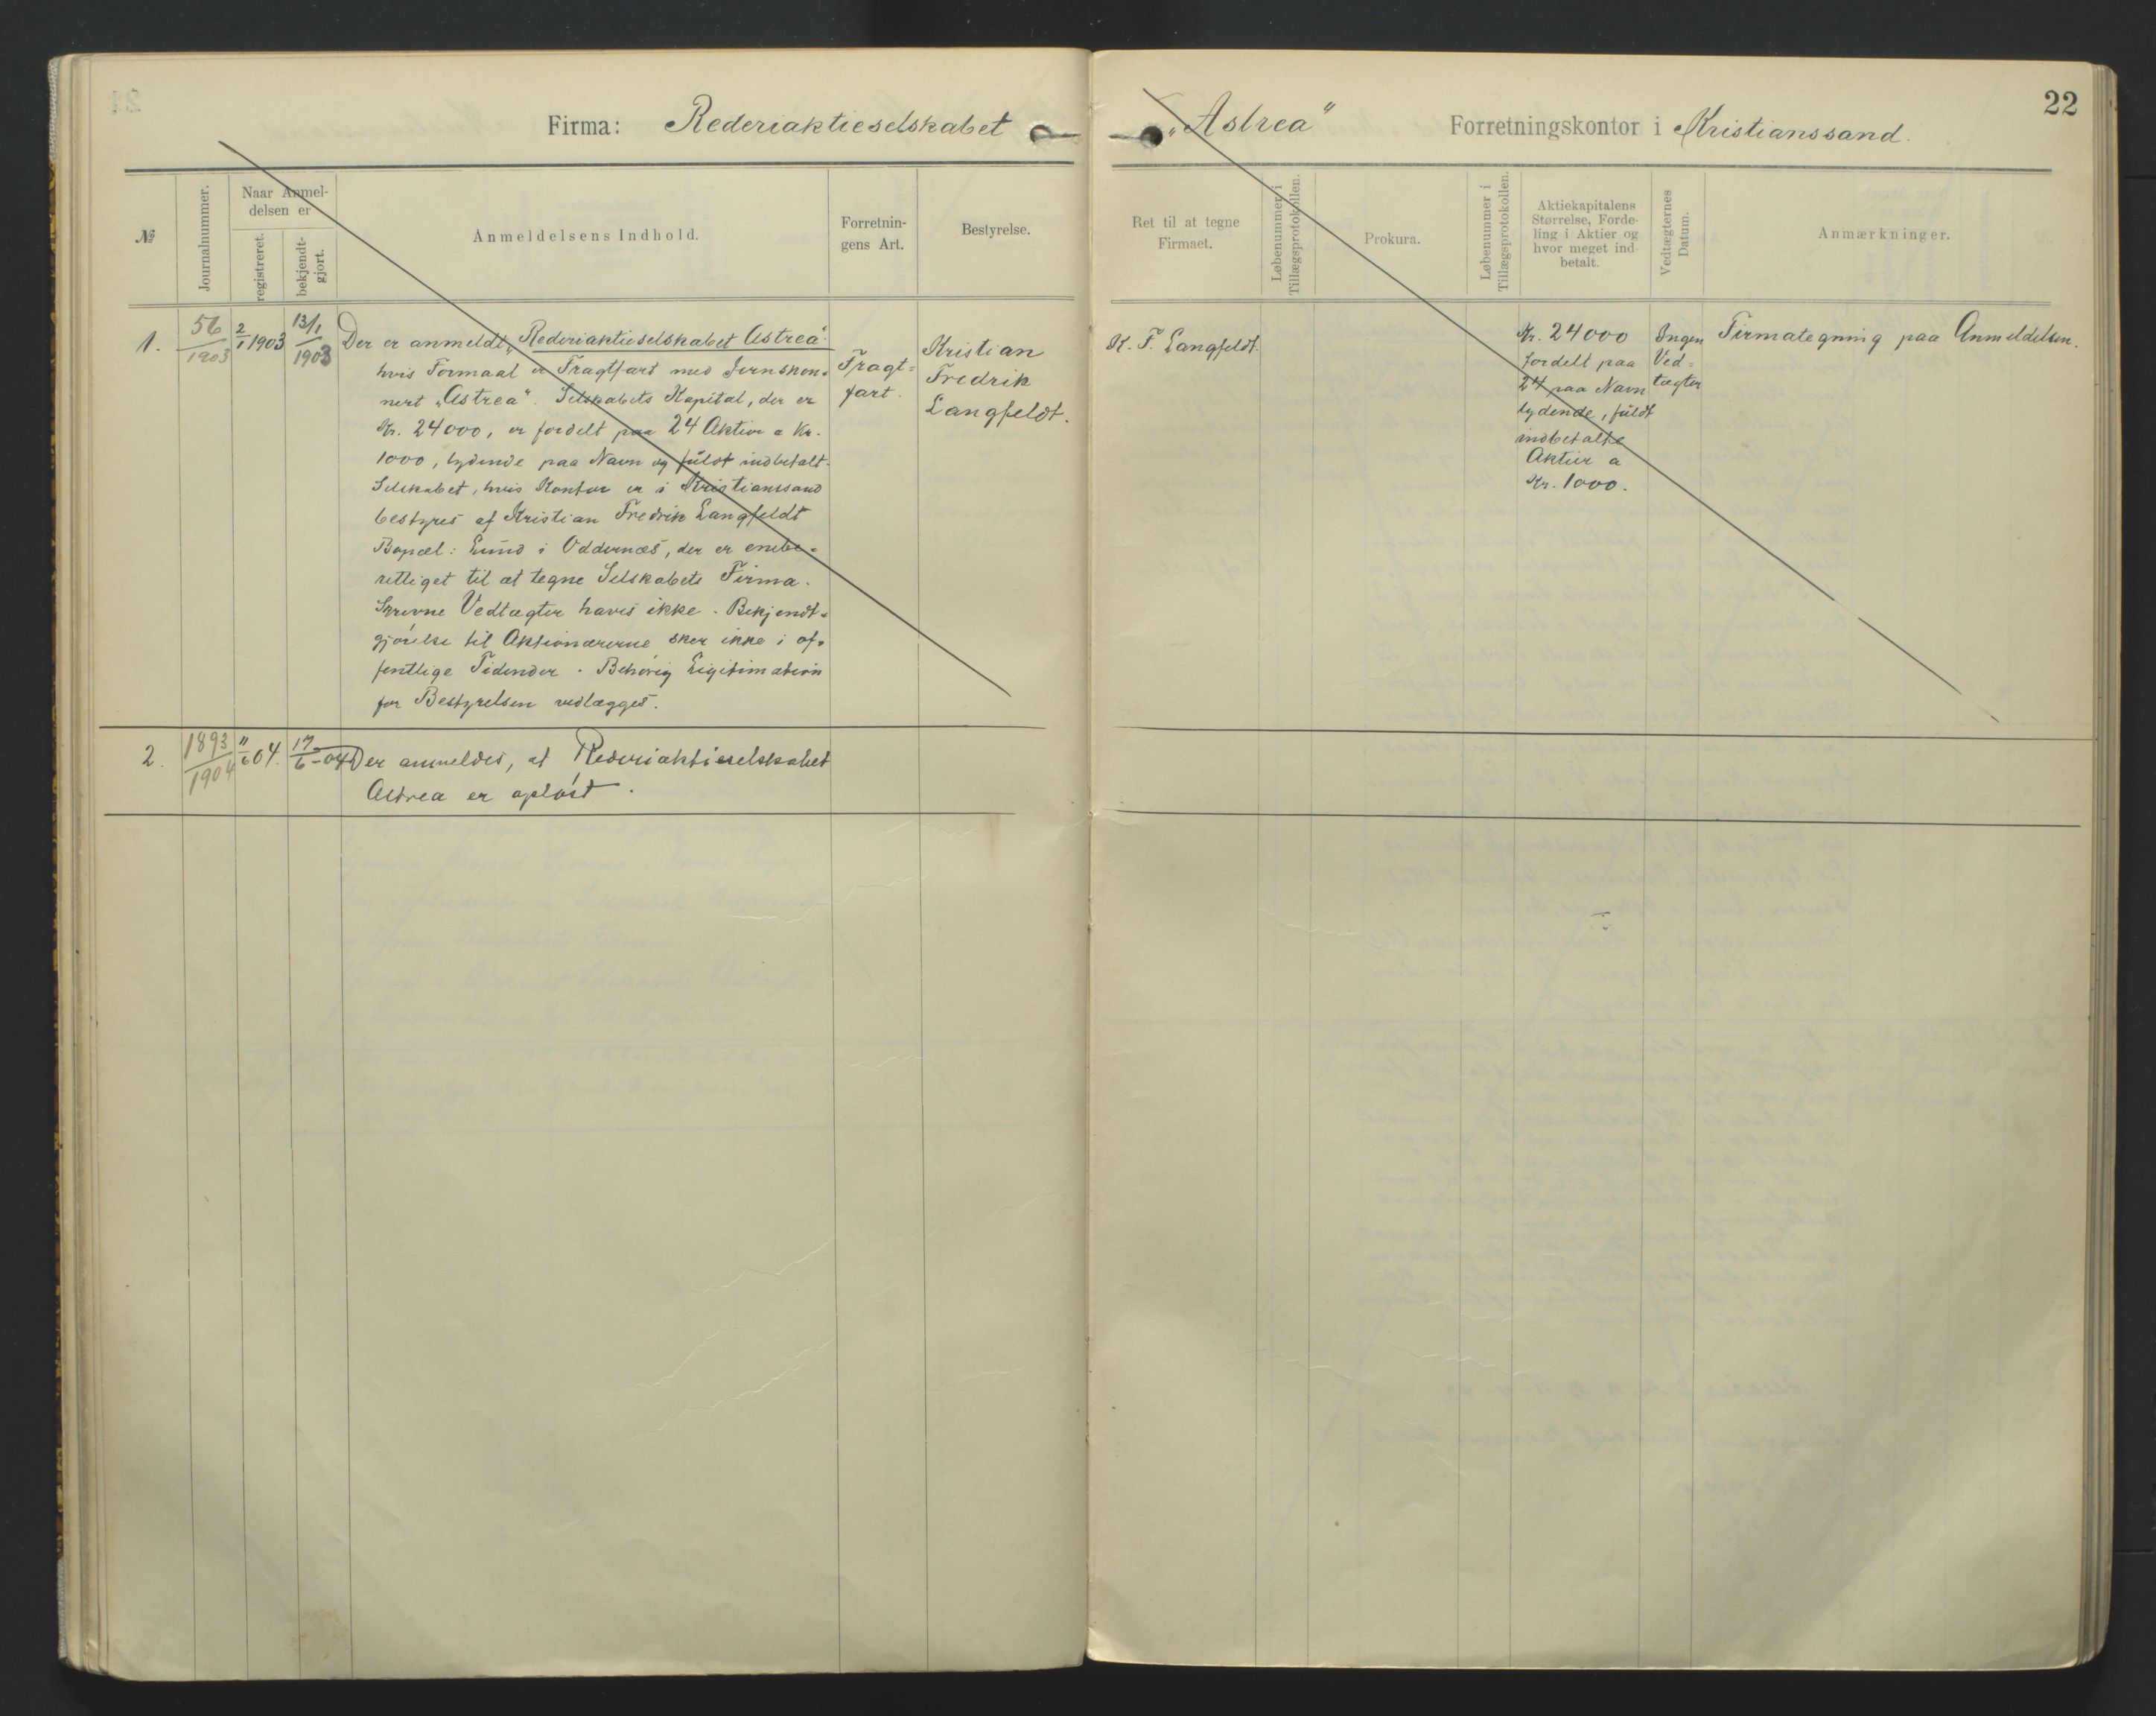 22
Firma: Rederiaktieselskabet „Astrea“ Forretningskontor i Kristianssand.
№
Journalnummer.
Naar Anmel-
delsen er
registreret.
bekjendt-
gjort.
Anmeldelsens Indhold.
Forretnin-
gens Art.
Bestyrelse.
Ret til at tegne
Firmaet.
Løbenummer i
Tillægsprotokollen.
Prokura.
Løbenummer i
Tillægsprotokollen.
Aktiekapitalens
Størrelse, Forde-
ling i Aktier og
hvor meget ind-
betalt.
Vedtægternes
Datum.
Anmærkninger.
1.
56/1903
2/1 1903
13/1 1903
Der er anmeldt „Rederiaktieselskabet Astrea“
hvis Formaal er Fragtfart med Jernskon-
nert „Astrea“. Selskabets Kapital, der er
Kr. 24000, er fordelt paa 24 Aktier a Kr.
1000, lydende paa Navn og fuldt indbetalt.
Selskabet, hvis Kontor er i Kristianssand
bestyres af Kristian Fredrik Langfeldt
Bopæl: Lund i Oddernæs, der er enebe-
rettiget til at tegne Selskabets Firma.
Skrevne Vedtægter haves ikke. Bekjendt-
gjørelse til Aktionærerne sker ikke i of-
fentlige Tidender. Behørig Legitimation
for Bestyrelsen vedlægges.
Fragt=
fart.
Kristian
Fredrik
Langfeldt.
K. F. Langfeldt.
Kr. 24000
fordelt paa
24 paa Navn
lydende, fuldt
indbetalte
Aktier a
Kr. 1000.
Ingen
Ved=
tægter
Firmategning paa Anmeldelsen.
2.
1893/1904
11/6 04.
17/6 - 04
Der anmeldes, at Rederiaktieselskabet
Astrea er opløst.